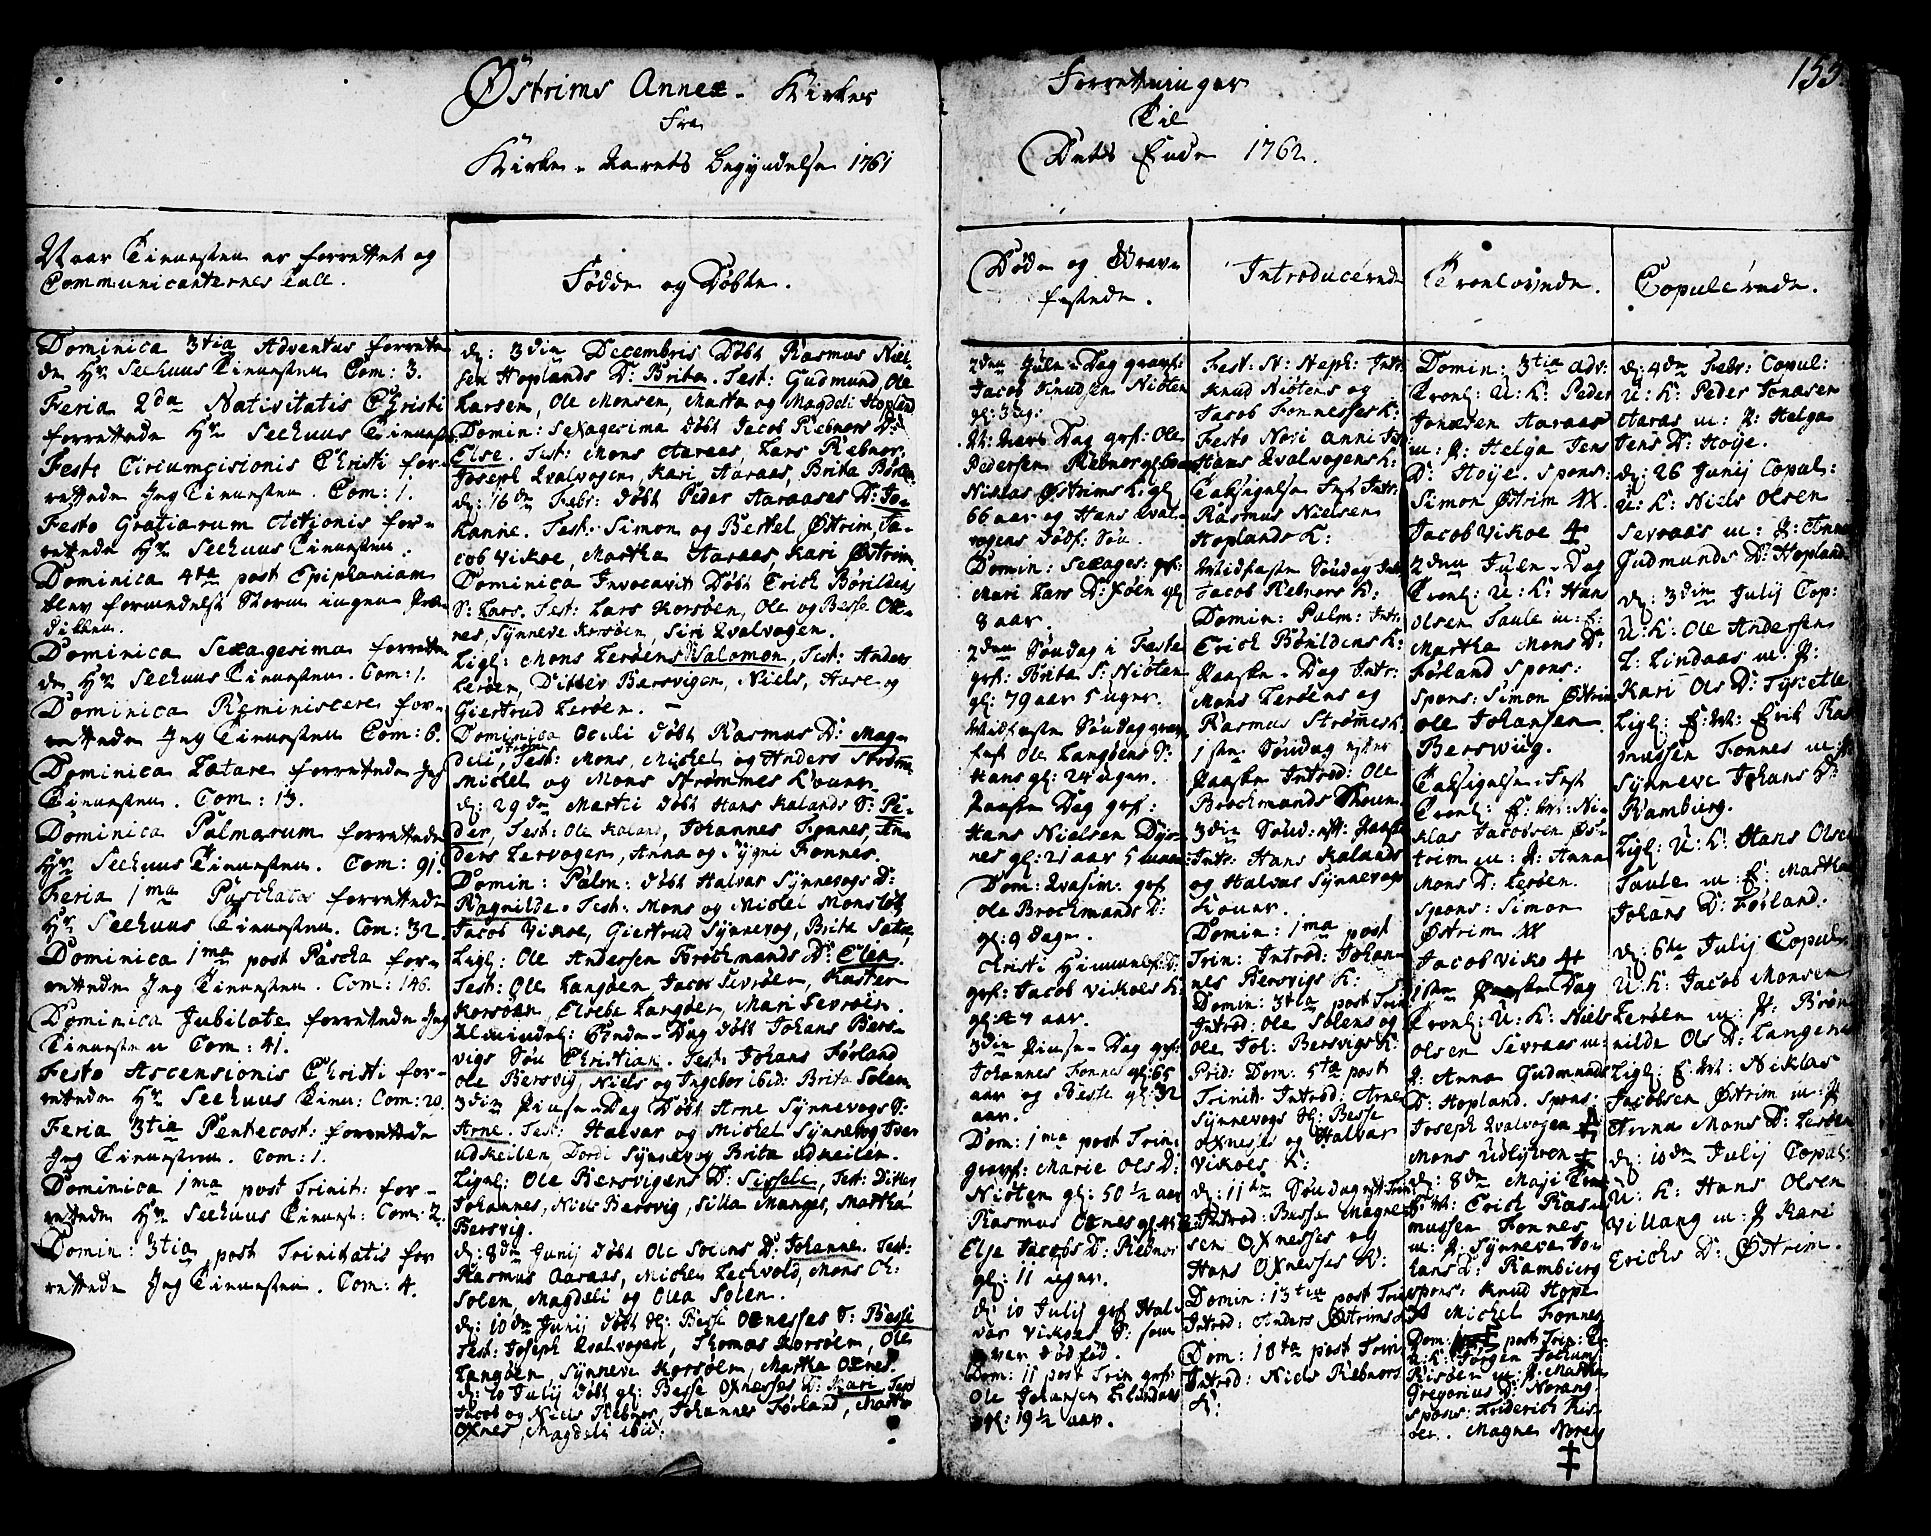 155.
Østrims Annex-Kirkes Forrettninger
Fra Til
Kirke-Aarets Begyndelse 1761 Dets Ende 1762.
Naar Tienesten er forrettet og
Communicanternes Tall.
Dominica 3tia Adventus forrette
de Hr Seehuus Tienesten Com: 3.
Feria 2da Nativitatis Christi
forrettede Hr Seehuus Tienesten
Festo Circumcisionis Christi for-
rettede Jeg Tienesten. Com: 1.
Festo Gratiarum Actionis for-
rettede Hr Seehuus Tienesten.
Dominica 4ta post Epiphaniam
blev formedelst Storm ingen Præ
diken.
Dominica Sexagesima forrette
de Hr Seehuus Tienesten. Com: 1.
Dominica Reminiscere for-
rettede Jeg Tienesten Com: 6.
Dominica Lætare forrettede Jeg
Tienesten. Com: 13.
Dominica Palmarum forrettede
Hr Seehuus Tienesten. Com: 91.
Feria 1ma Paschatos forrettede
Hr Seehuus Tienesten. Com: 32.
Dominica 1ma post Pascha for-
rettede Jeg Tienesten. Com: 146.
Dominica Jubilate forrettede Jeg
Tienesten Com: 41.
Festo Ascensionis Christi for-
rettede Hr Seehuus Tien: Com: 20.
Feria 3tia Pentecost: forrettede
Jeg Tienesten. Com: 1.
Dominica 1ma post Trinit: for-
rettede Hr Seehuus Tienest: Com: 2.
Domin: 3tia post Trinitatis for
rettede Jeg Tienesten. Com: 4.
Fødde og Døbte.
d: 3die Decembris Døbt Rasmus Niel-
sen Hoplands D: Brita. Test: Gudmund, Ole
Larsen, Ole Monsen, Marta og Magdeli Hopland
Domin: Sexagesima døbt Jacob Rebnors D:
Else. Test: Mons Aaraas, Lars Rebnor,
Joseph Qvalvogen, Kari Aaraas, Brita Børild
d: 16de Febr: døbt Peder Aaraases D: Jo-
hanne. Test: Simon og Bertel Østrim, Ja-
cob Vikøe, Martha Aaraas, Kari Østrim
Dominica Invocavit Døbt Erich Børildens
S: Lars. Test: Lars Korsøen, Ole og Besse Ox-
nes, Synneve Korsøen, Siri Qvalvogen.
Ligl: Mons Lerøens S: Salomon, Test: Anders
Lerøen, Ditlev Bersvigen, Niels, Aase og
Giertrud Lerøen.
Dominica Oculi døbt Rasmus D: Mag-
deli, Test: Mons, Michel og Anders Strømme
Michel og Mons Strømmes Koner
d: 29de Martii døbt Hans Kalands S: Pe-
der, Test: Ole Kaland, Johannes Fonnes, An-
ders Lervogen, Anna og Sygni Fonnes.
Domin: Palm: døbt Halvar Synnevogs D:
Ragnilde. Test: Mons og Michel Monslet,
Jacob Vikøe, Giertrud Synnevog, Brite Sætre,
Ligl: Ole Andersen Brochmands D: Elen.
Test: Ole Langøen, Jacob Sevrøen, Kaster
Korsøen, Elsebe Langøen, Mari Sevrøen
Almindel: Bede-Dag døbt Johans Bers-
vigs Søn Christian. Test: Johans Førland
Ole Bersvig, Niels og Ingebor ibid: Brita Solem
3die Pintse-Dag Døbt Arne Synnevogs S:
Arne. Test: Halvar og Michel Synnevog Iver
udkeilen, Dordi Synnevog Brita udkeilen.
Ligl: Ole Bersvigens D: Sissele, Test: Ditlev
Johannes, Niels Bersvig, Silla Manges, Martha
Bersvig.
d: 8de Junij døbt Ole Solens D: Johanne. Test:
Rasmus Aaraas, Michel Lechvold, Mons Ch:
Solen, Magdeli og Olea Solen.
d: 10de Junij døbt gl: Besse Oxneses S: Besse
Test: Joseph Qvalvogen, Thomas Korsøen, Ole
Langøen, Synneve Korsøen, Martha Oxnes.
d: 20 Julij døbt gl: Besse Oxnesses D: Kari, Test
Jacob og Niels Rebnor, Johannes Førland, Marta
Oxnes, Magdeli ibid:
Døde og Grave
festede.
2den Jule-Dag gravf:
Jacob Knudsen Niøten
gl: 3 ug:
N: Aars Dag grf: Ole
Pedersen Rebnor gl:
Niklas Østrims K: gl:
66 aar og Hans Qval-
vogens Dødf: Søn.
Domin: Sexages: grf:
Mari Lars D: gl
8 aar.
2den Søndag i Faste
grf: Brita S: Niøten
gl: 79 aar 5 uger.
Midfaste Søndag grav
fest Ole Langøens S:
Hans gl: 24 uger.
Paaske Dag grf:
Hans Nielsen Dys-
nes gl: 21 aar 5
Dom: Qvasim: grf
Ole Brochmands D:
gl: 9 dage.
Christi Himmelf: D:
grf: Jacob Vikøes K:
gl: 47 aar.
3die Pintse-Dag grf:
Johannes Fonnes gl: 65
aar og Besse gl: 32
aar.
Dom: 1ma post Trin:
gravf: Marie Ols D:
Niøten gl: 50 1/2 aar
Rasmus Oxnes gl:
Else Jacobs D: Rebnor
gl: 11 uger.
d: 10 Julij grf Hal-
var Vikøes S: som
var dødfød.
Dom: 11 post Trin grf:
Ole Johansen
gl: 19 1/2 aar.
Introducerede
Fest: N: Neph: Intr:
Knud Niøtens og
Jacob Fonnesses K:
Festo Novi Anni Int
Hans Qvalvogens K:
Taksigelse Fest Intr:
Rasmus Nielsen
Hoplands K:
Midfaste Søndag Intr
Jacob Rebnors K:
Domin: Palm: Intr:
Erich Børildens K:
Paaske-Dag Intr:
Mons Lerøens og
Rasmus Strømes K:
1ste Søndag efter
Paaske Introd: Ole
Brochmands Kone.
3die Sønd: eft: Paaske
Intr: Hans Kalands
og Halvar Synnevogs
Koner.
Domin: 1ma post
Trin: Introd: Johan-
nes Bersvigs K:
Domin: 3tia post Trin
Introd: Ole Solens og
Ole Joh: Bersvigs K:
Prid: Dom: 5ta post
Trinit: Introd: Arne
Synnevogs gl: Besse
Oxneses og Halvar
Vikøes K:
d: 11te Søndag eft Trin
Introd: Besse Magne
sen Oxnesses og
Hans Oxnesses K:
Domin: 13tia post Trin
Introd: Anders Østrims K
Dom: 18ta post Trin:
Introd: Niels Rebnors
K:
Troelovede.
Domin: 3tia Adv:
Trool: U: K: Peder
Jonesen Aaraas
m: P: Helga Jens
D: Høije. Spons:
Simon Østrim
Jacob Vikøe
2den Jule-Dag
Trool: U: K: Hans
Olsen Taule m: E:
Martha Mons D:
Førland Spons:
Spons: Simon Østrim
Ole Johansen
Berswiig.
Taksigelse-Fest
Trool: E: M: Ni-
klas Jacobsen Øs-
trim m: P: Anna
Mons D: Lerøen.
Spons: Simon
Østrim
Jacob Viko
1ste Paaske Dag
Trool: U: K: Niels
Olsen Sevraas m:
P: Anna Gudmunds
D: Hopland. Spons:
Joseph Qvalvogen
Mons Udlyren
d: 8de Maji Trool
E: M: Erich Ras
mussen Fonnes
m: P: Synneve Jo-
hans D: Ramberg
Spons: Knud Hope
Michel Fonnes
Dom: post Trin:
U: K: Jørgen Jochum
Risøen m: P: Martha
Gregorius D: Norang
Spons: Friderich Ris
øen. Magne Norang
Copulerede.
d: 4de Febr: Copul:
U: K: Peder Jonasen
Aaras m: P: Helga
Jens D: Høije.
d: 26 Junij Copul:
U: K: Niels Olsen
Sevraas m: P: Anna
Gudmunds D: Hopland
d: 3die Julij Cop:
U: K: Ole Andersen
L: Lindaas m: P:
Kari Ols D:
Ligl: E: M: Erik Ras
mussen Fonnes m: P:
Synneve Johans D:
Ramberg.
Ligl: U: K: Hans Olsen
Taule m: E: Martha
Johans D: Førland.
d: 6te Julij Copul:
U: K: Jacob Monsen
Lerøen m: P: Brøn-
nilde Ols D: Langøen
Ligl: E: M: Niklas
Jacobsen Østrim m: P
Anna Mons D: Lerøen
d: 10de Julij Copul:
U: K: Hans Olsen
Villang m: P Kari
Erichs D: Østrim.